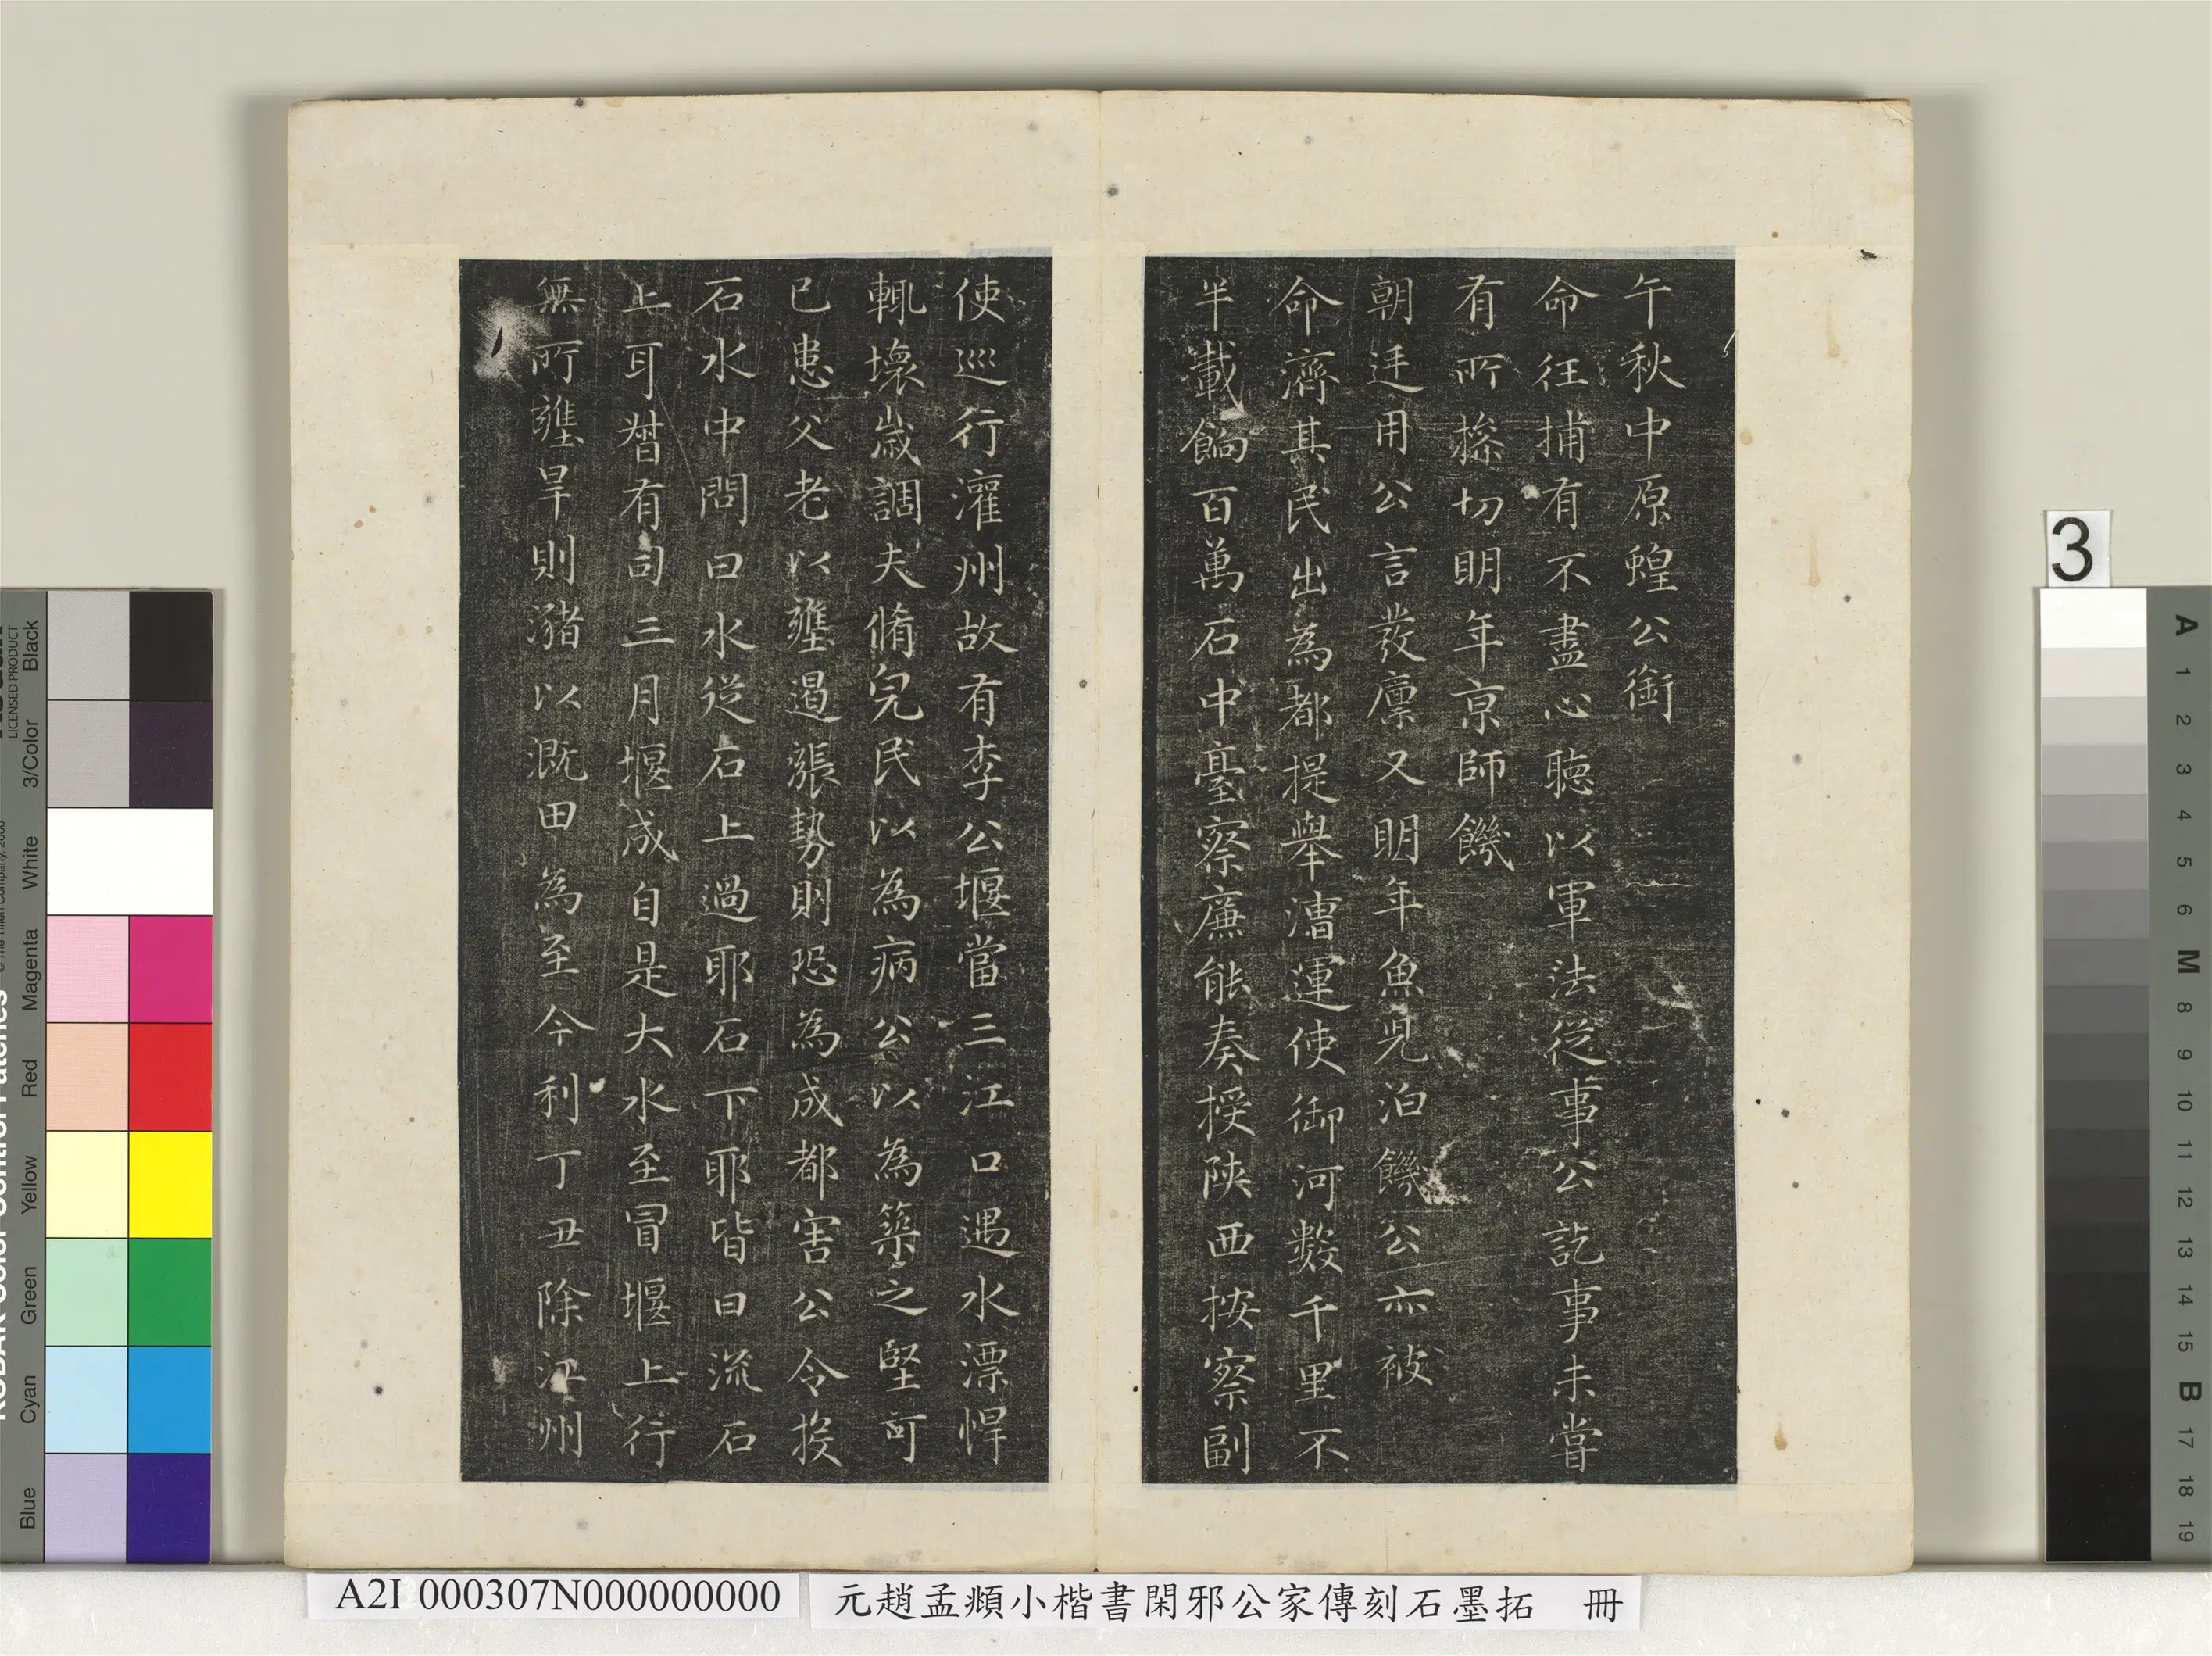 午秋中原蝗公銜
命往捕有不盡心聽以軍法從事公訖事未嘗
有所搽切明年京師饑
朝廷用公言發廩又明年魚児泊饑公亦被
命濟其民出為都提舉漕運使御河數千里不
半載餉百萬石中臺察廉能奏授陝西按察副
使巡行灌州故有李公堰當三江口遇水漂悍
輒壞歲調夫脩完民以為病公以為築之堅可
已患父老以壅遏漲勢則恐為成都害公令投
石水中問曰水從石上過耶石下耶皆曰流石
上耳朁有司三月堰成自是大水至冒堰上行
無所壅旱則瀦以溉田為至今利丁丑除江州
3
A2I 000307N000000000
元趙孟頫小楷書閑邪公家傳刻石墨拓 冊
Black
3/Color
White
Magenta
Red
Yellow
Green
Cyan
Blue
LICENSED PRODUCT
© The Tiffen Company, 2000
KODAK Color Control Patches
A 1 2 3 4 5 6 M 8 9 10 11 12 13 14 15 B 17 18 19